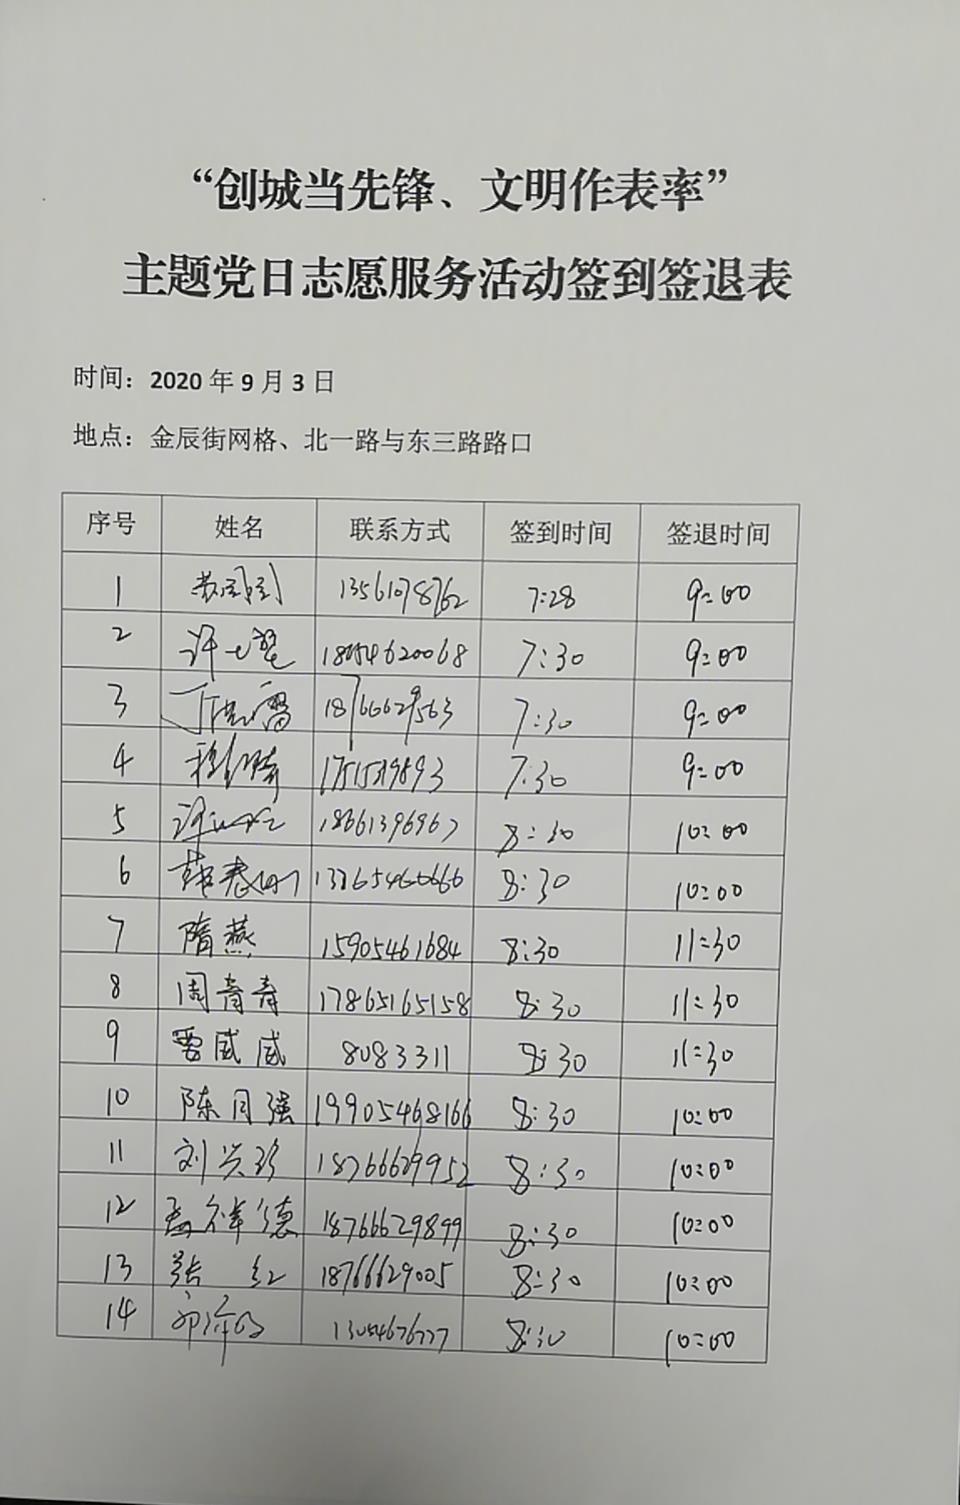 “创城当先锋、文明作表率”
主题党日志愿服务活动签到签退表
时间：2020 年 9 月 3 日
地点：金辰街网格、北一路与东三路路口
序号 姓名 联系方式 签到时间 签退时间
1 13561078762 7:28 9:00
2 18654620068 7:30 9:00
3 18766629563 7:30 9:00
4 7:30 9:00
5 18661396967 8:30 10:00
6 8:30 10:00
7 隋燕 15905461684 8:30 11:30
8 周青青 17865165158 8:30 11:30
9 雷威威 8083311 8:30 11:30
10 陈月强 19905468166 8:30 10:00
11 刘兴珍 18766629952 8:30 10:00
12 孟祥德 18766629899 8:30 10:00
13 张 红 18766629005 8:30 10:00
14 13054676777 8:30 10:00